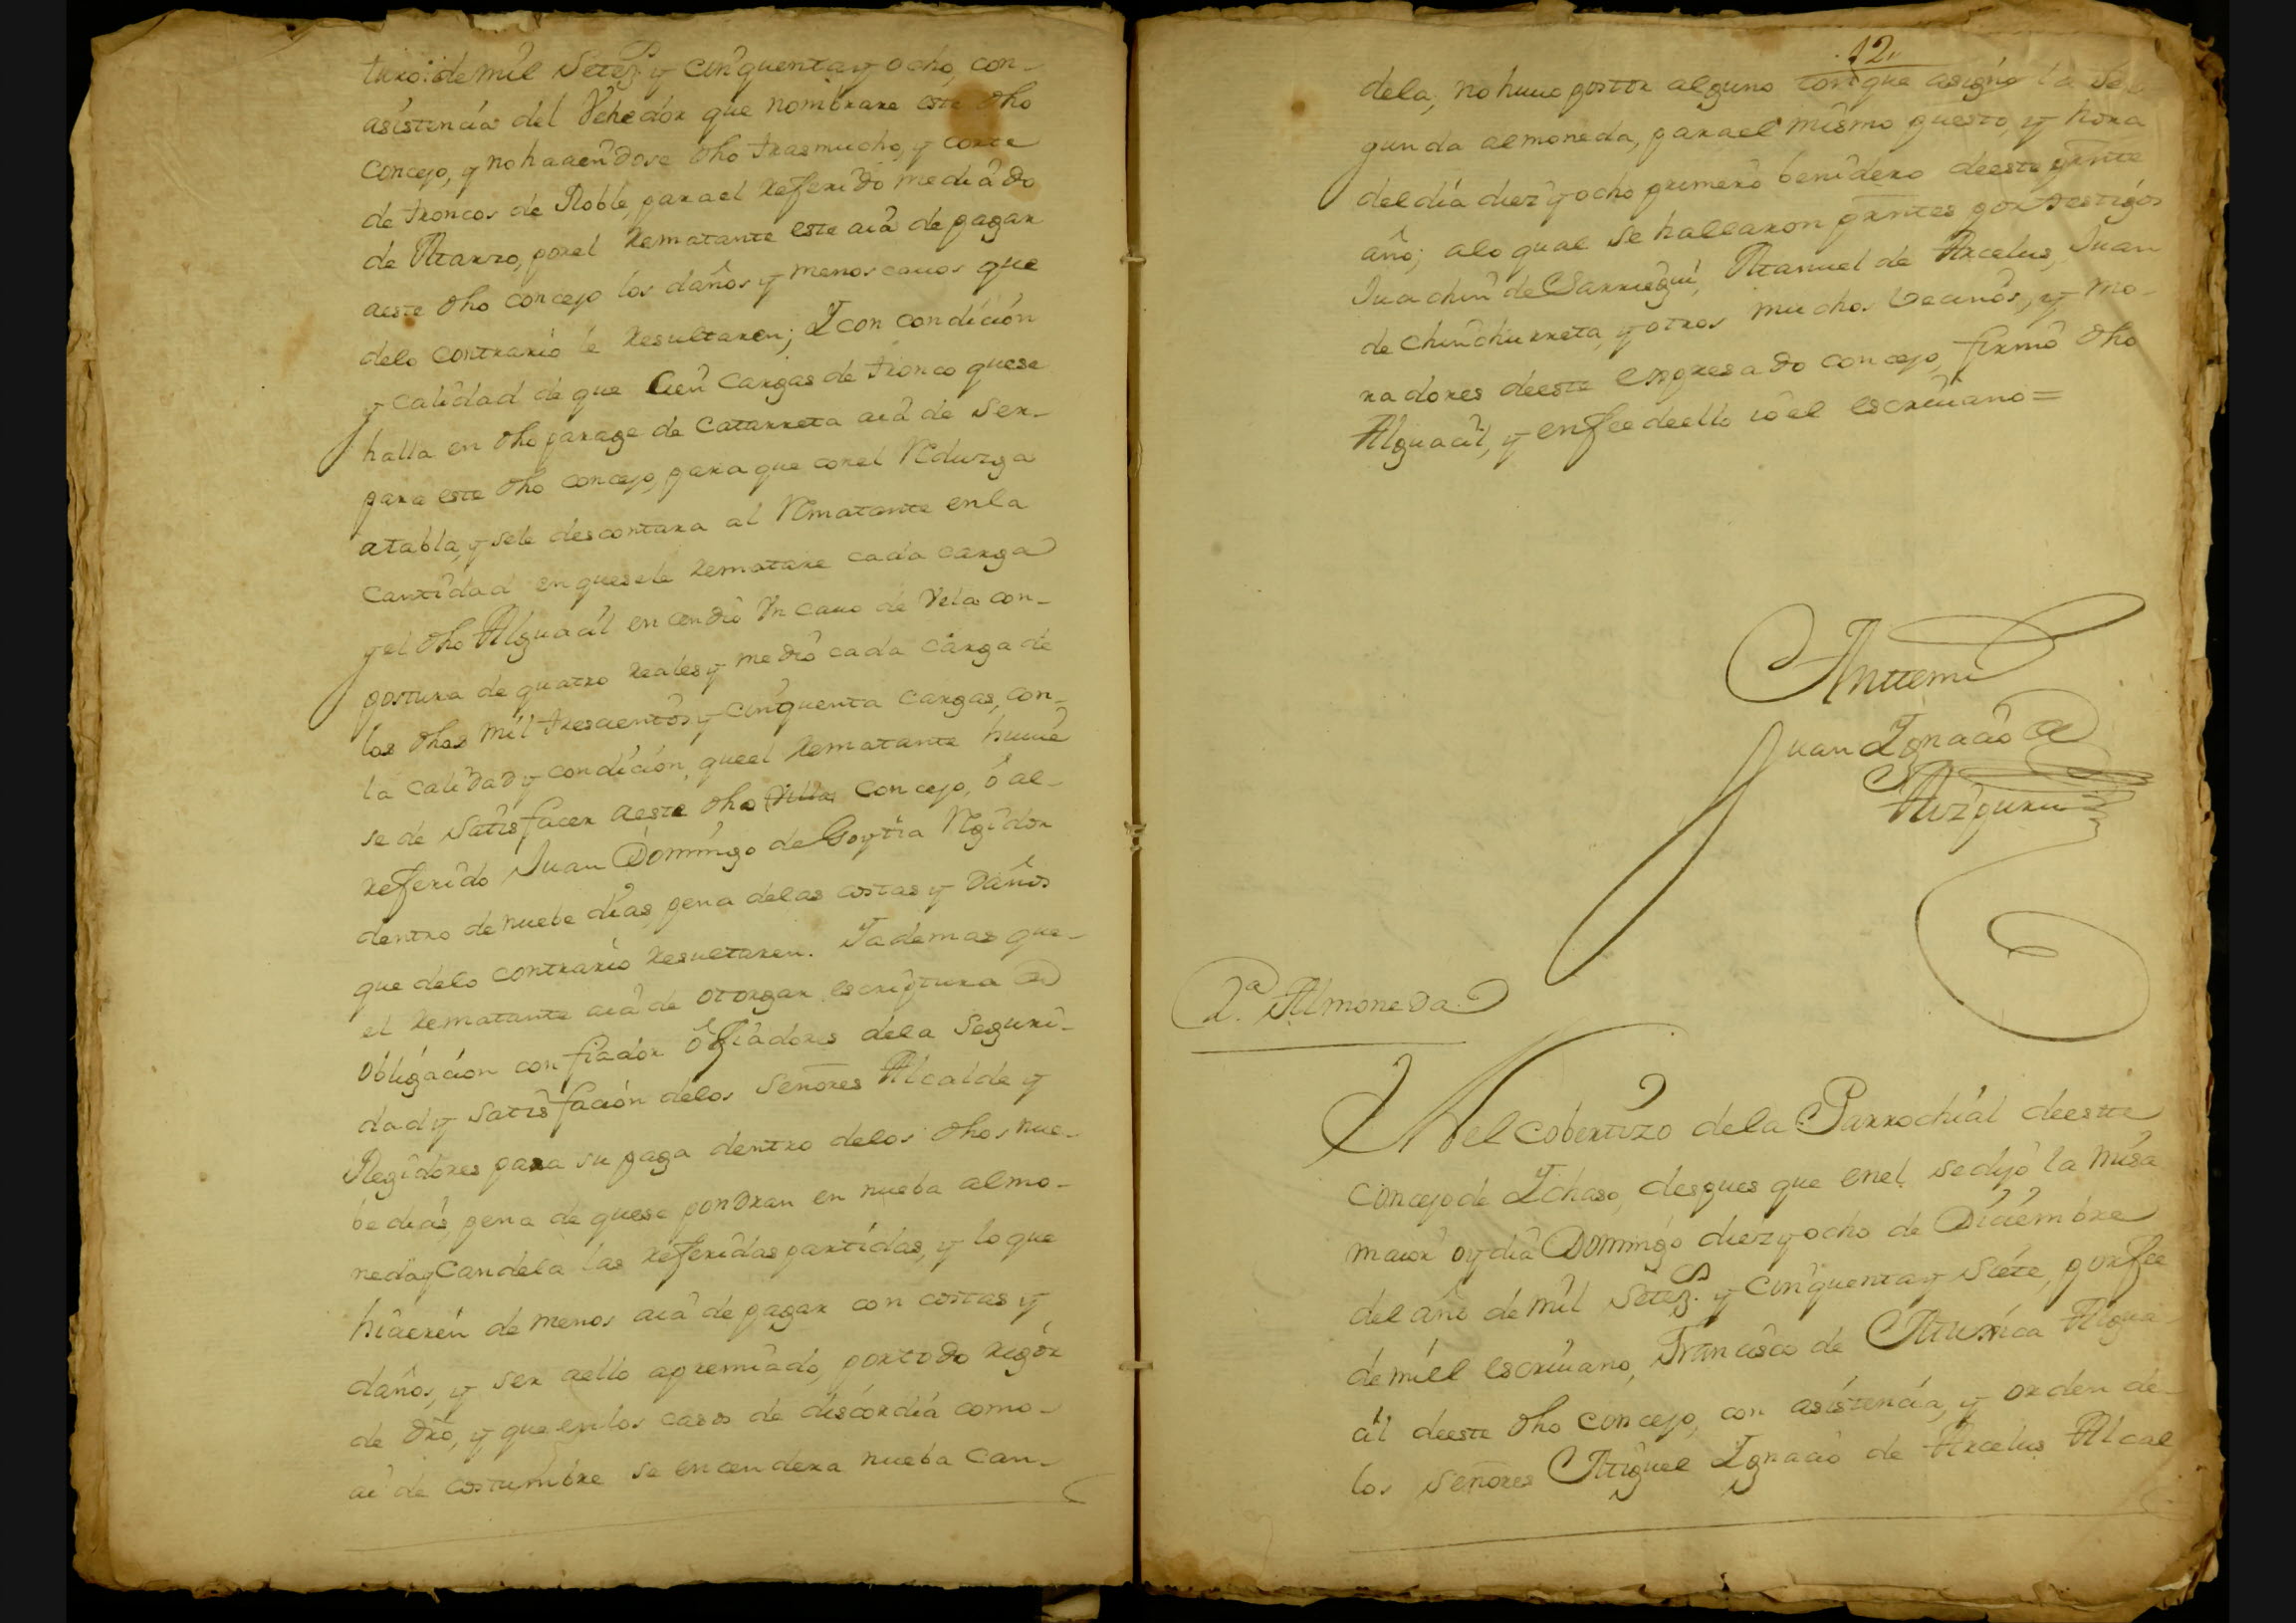 turo: de mil Setez.s y cinquenta y ocho, con-
asistencia del Vehedor que nombrare este dho
concejo, y no haciendose dho trasmucho, y corte
de troncos de Roble, para el referido mediado
de Marzo, por el Rematante este aia de pagar
a este dho concejo los daños y menoscauos que
de lo contrario le resultaren; Y con condición
y calidad de que Cien cargas de tronco que se
halla en dho parage de Catarreta aia de ser-
para este dho concejo, para que con el Reduzga
a tabla, y se le descontara al Rematante en la
Cantidad en que se le rematare cada carga
y el dho Alguacil encendio Vn cauo de Vela con-
postura de quatro reales y medio cada carga de
las dhas mil trescientos y cinquenta cargas, con-
la calidad y condición, que el Rematante huuie
se de satisfacer a este dho Villa concejo, ó al-
referido Juan Domingo de Goytia Regidor
dentro de nuebe días, pena de las costas y daños
que de lo contrario resultaren. Y ademas que-
el Rematante aia de otorgar escriptura de
obligación con fiador ó fiadores de la seguri-
dad y satisfación de los Señores Alcalde y
Regidores para su paga dentro de los dhos nue-
be días, pena de que se pondran en nueba almo-
neda y Candela las referidas partidas, y lo que
hicieren de menos aia de pagar con costas y
daños, y ser a ello apremiado, por todo rigór
de dro, y que en los casos de discordia como-
ai de costumbre se encendera nueba can-
12
dela, no huuo postor alguno con que asigno la Se
gunda almoneda, para el mismo puesto, y hora
del día diez y ocho primero benidero de este presnte
año; a lo qual se hallaron presntes por testigos
Juachin de Sarriegui, Manuel de Arcelus, Juan
de Chinchurreta, y otros muchos vecinos, y mo-
radores de este expresado concejo, firmó dho
Alguacil, y en fee de ello io el escriuano =
Anttemi
Juan Ignacio de
Aizpuru
2.a Almoneda
En el cobertizo de la Parrochial de este
concejo de Ichaso, despues que en el se dijo la misa
maior oy dia Domingo diez y ocho de Diciembre
del año de mil Setez.s y cinquenta y siete, por fee
de mi el escriuano, Francisco de Mugica Algua
cil de este dho concejo, con asistencia, y orden de-
los señores Miguel Ignacio de Arcelus Alcal